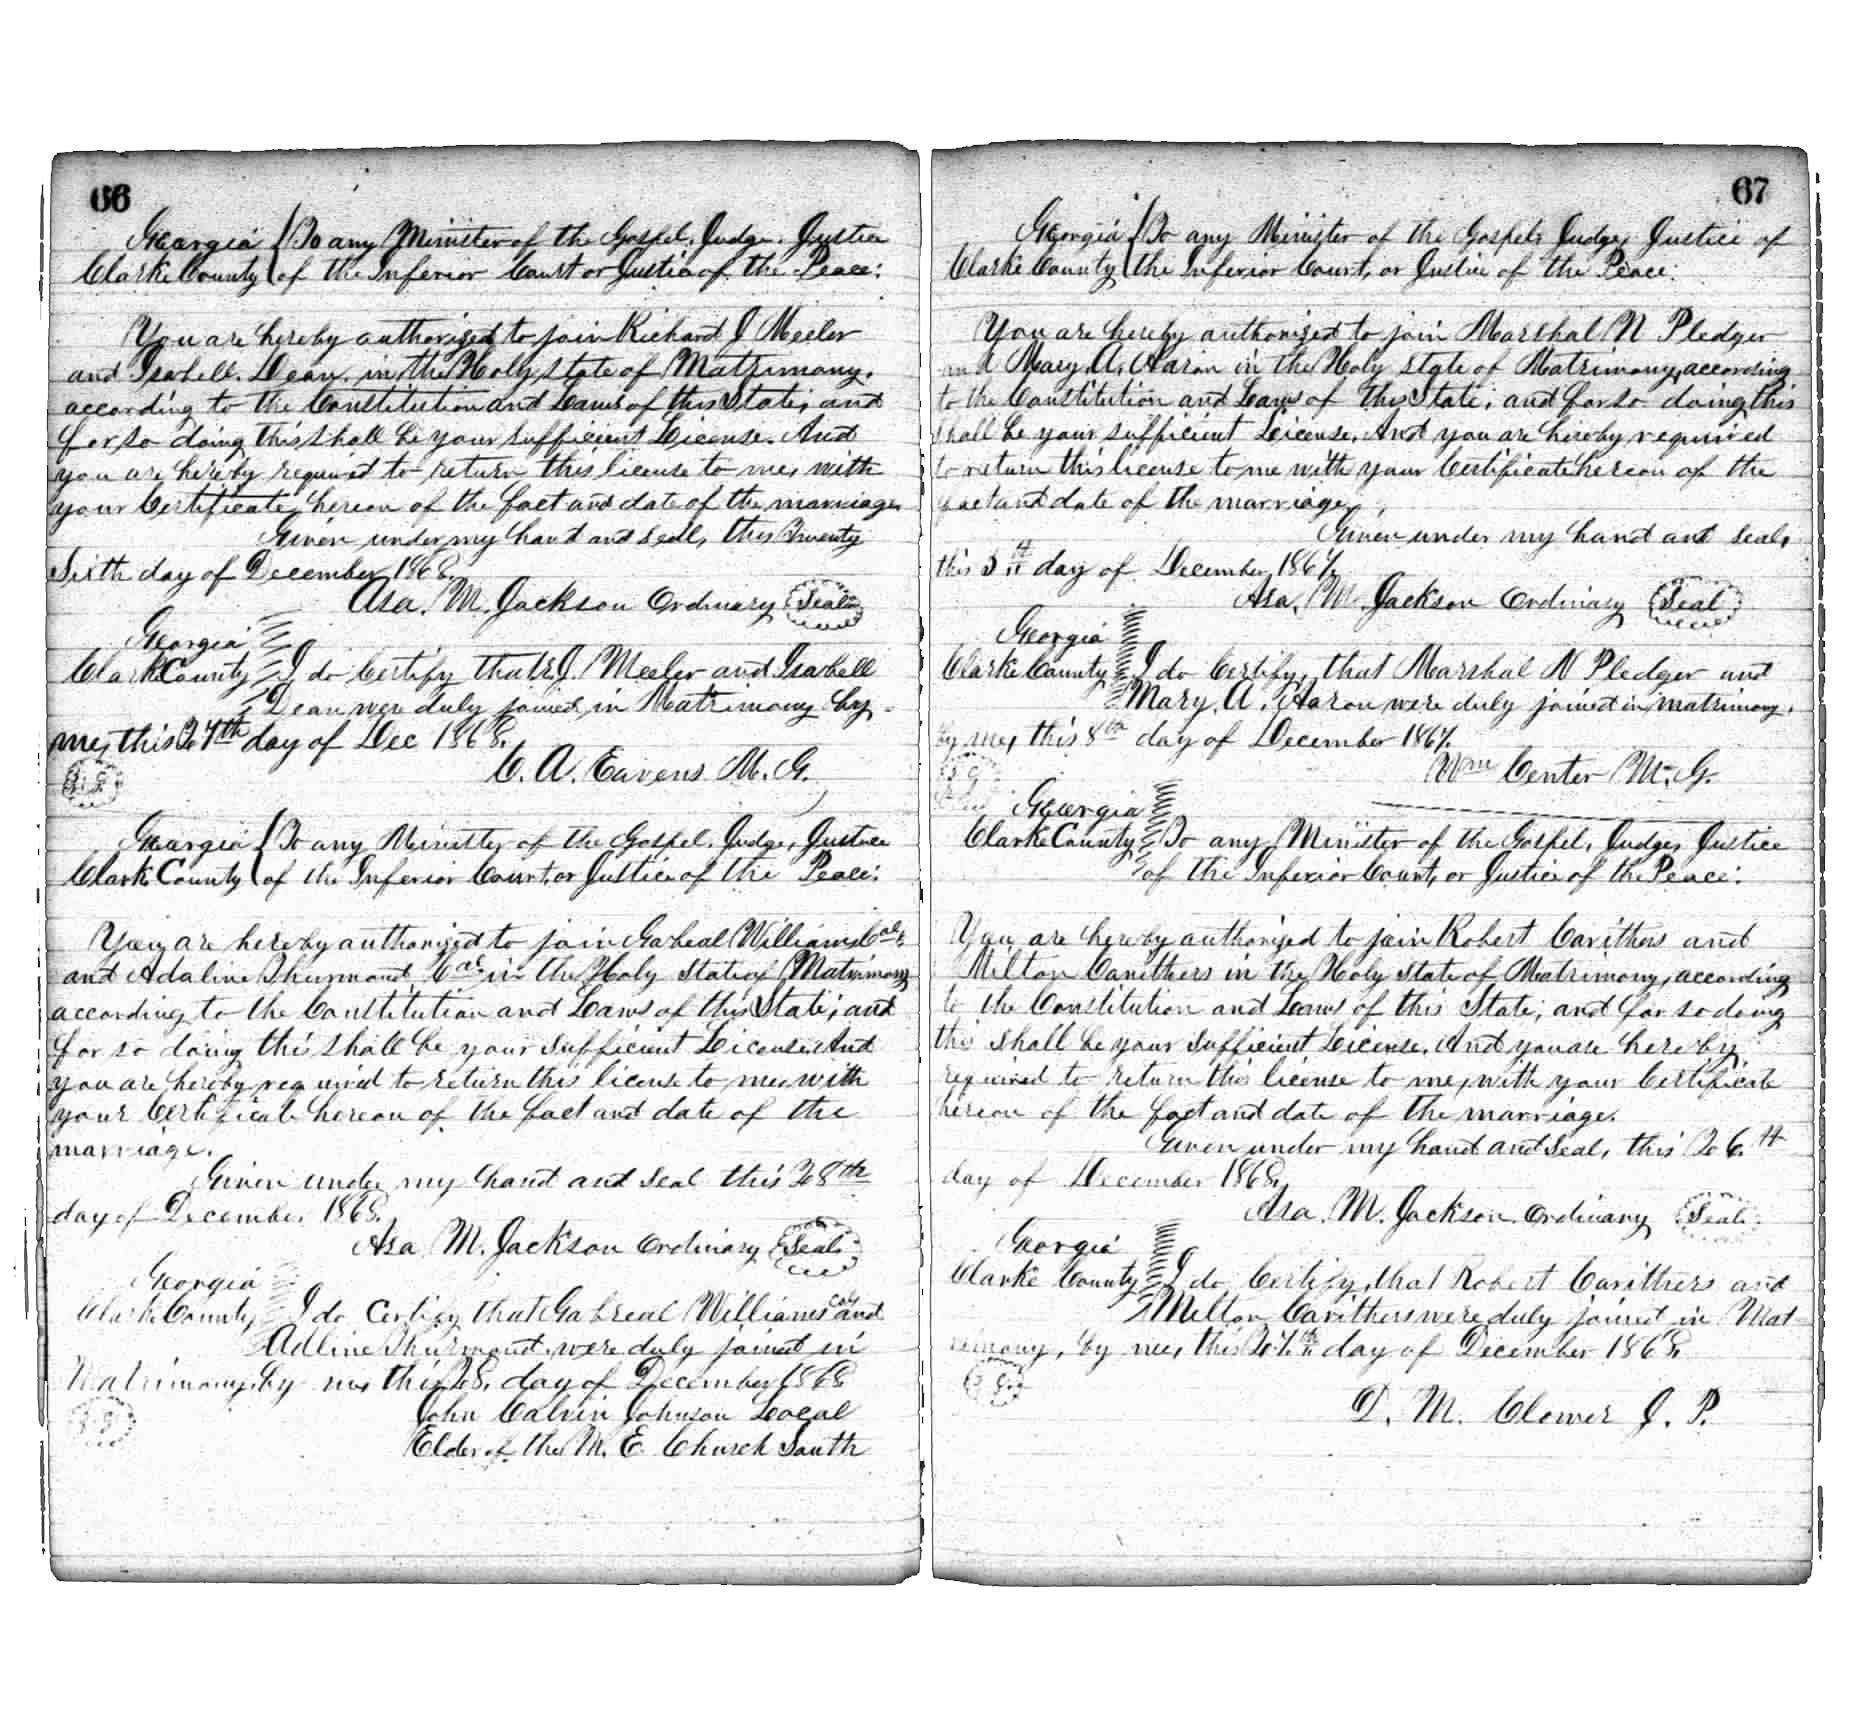 66
Georgia To any Minister of the Gospel, Judge, Justice
Clarke County of the Inferior Court or Justice of the Peace:
You are hereby authorized to join Richard J Meeler
and Isabell. Dean. in the Holy state of Matrimony.
according to the Constitution and Laws of this State; and
for so doing this shall be your sufficient License. And
you are hereby required to return this license to me, with
your Certificate, hereon of the fact and date of the marriage.
Given under my hand and seal, this Twenty
Sixth day of December 1868.
Asa. M. Jackson Ordinary Seal
Georgia
Clark County I do Certify that R. J. Meeler and Isabell
Dean were duly joined in Matrimony by
me, this 27th day of Dec 1868.
C. A. Eavens M. G.
Georgia To any Minister of the Gospel, Judge, Justice
Clark County of the Inferior Court, or Justice of the Peace:
You are hereby authorized to join Gabreal Williams Col
and Adaline Thurmond, Col in the Holy State of Matrimony
according to the Constitution and Laws of this State; and
for so doing this shall be your sufficient License. And
you are hereby required to return this license to me, with
your Certificate hereon of the fact and date of the
marriage.
Given under my hand and seal this 28th
day of December. 1868.
Asa M. Jackson Ordinary Seal
Georgia
Clark County I do certify that Gabreal Williams Col and
Adline Thurmont, were duly joined in
Matrimony, by me, this 28, day of December 1868
John Calvin Johnson Local
Elder of the M. E. Church South
67
Georgia To any Minister of the Gospel, Judge, Justice of
Clarke County the Inferior Court, or Justice of the Peace:
You are hereby authorized to join Marshal N Pledger
and Mary. A. Aaron in the Holy state of Matrimony, according
to the Constitution and Laws of this State; and for so doing this
shall be your sufficient License. And you are hereby required
to return this license to me with your Certificate hereon of the
fact and date of the marriage.
Given under my hand and seal,
this 5th day of December, 1867.
Asa. M. Jackson Ordinary Seal
Georgia
Clarke County I do Certify, that Marshal N Pledger and
Mary. A. Aaron were duly joined in matrimony,
by me, this 8th day of December 1867.
Wm Center M. G.
Georgia
Clarke County To any Minister of the Gospel, Judge, Justice
of the Inferior Court, or Justice of the Peace:
You are hereby authorized to join Robert Carithers and
Milton Carithers in the Holy state of Matrimony, according
to the Constitution and Laws of this State; and for so doing
this shall be your sufficient License. And you are hereby
required to return this license to me, with your Certificate
hereon of the fact and date of the marriage.
Given under my hand and seal, this 26th
day of December 1868.
Asa. M. Jackson. Ordinary Seal
Georgia
Clarke County I do Certify, that Robert Carithers and
Milton Carithers were duly joined in Mat
remony, by me, this 27th day of December 1868.
D. M. Clower J. P.